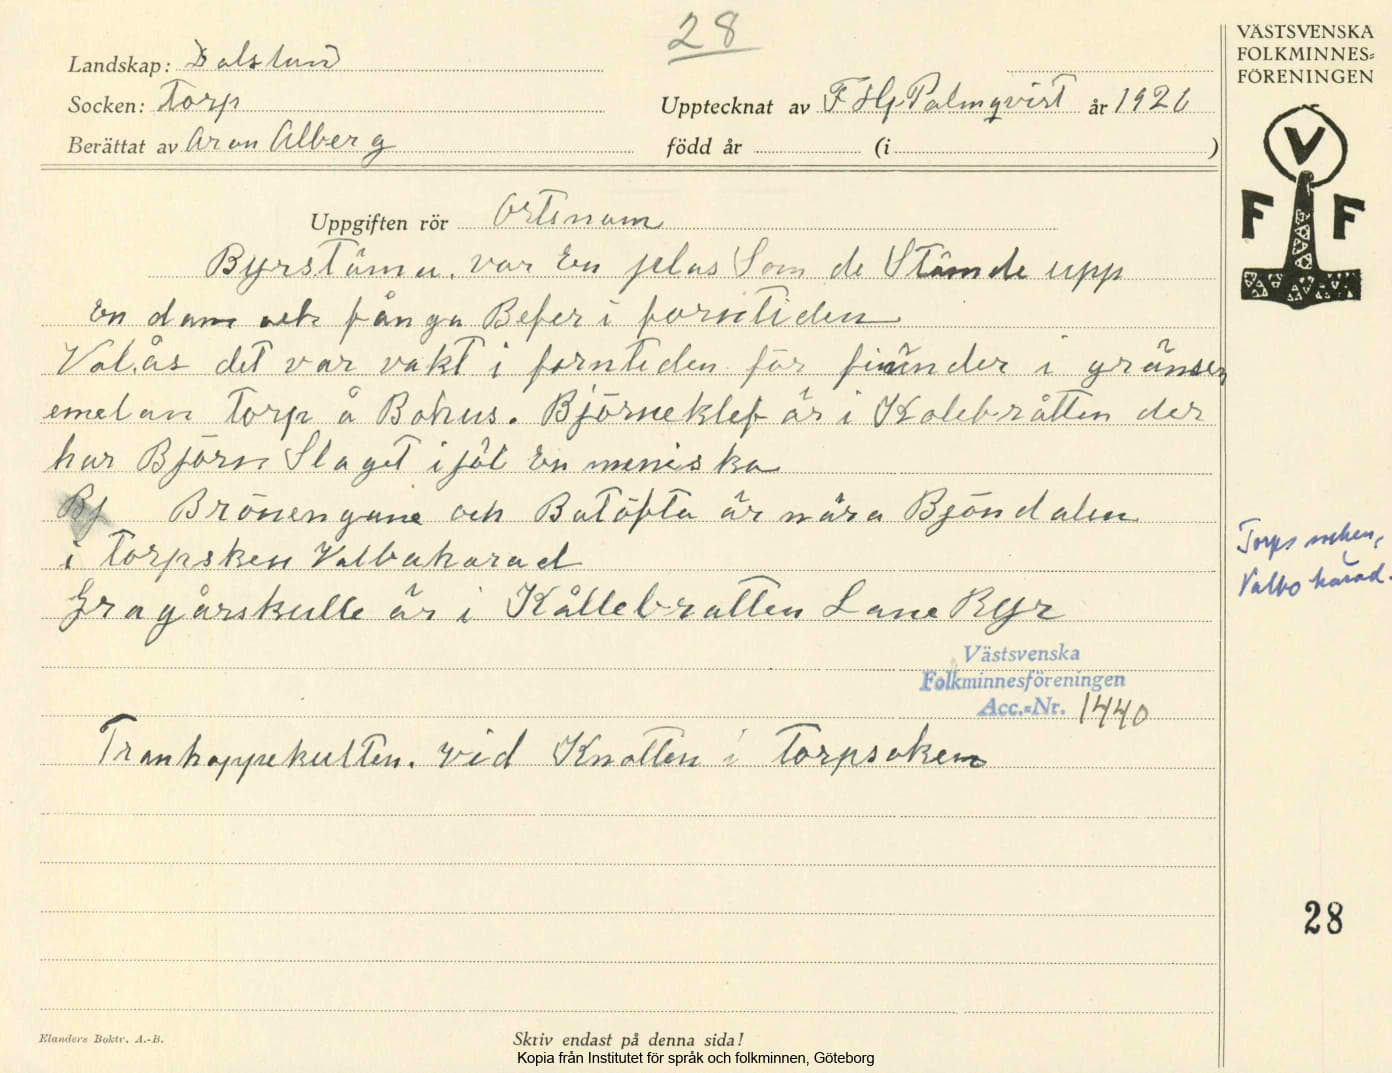 28
VÄSTSVENSKA
FOLKMINNES=
FÖRENINGEN
Landskap: Dalsland
Socken: Torp
Upptecknat av F Hj Palmqvist år 1926
Berättat av Aron Alberg
född år (i )
V
F F
Uppgiften rör Ortsnam
Byrstämu. var En plas Som de Stämde upp
En dam och fånga Befer i forntiden
Valås det var vakt i forntiden för fiünder i gränsen
emelan Torp å Bohus. Björneklef är i Kolebråtten der
har Björn Slaget ijäl En meniska
Bj Brönengane och Batöfta är nära Bjöndalen
i Torpsken Valbaharad
Torps socken,
Valbo härad.
Gragårskulle är i Kållebratten Lane Ryr
Västsvenska
Folkminnesföreningen
Acc.=Nr. 1440
Tranhoppekullen. vid Knatten i Torpsoken
28
Elanders Boktr. A.-B.
Skriv endast på denna sida!
Kopia från Institutet för språk och folkminnen, Göteborg